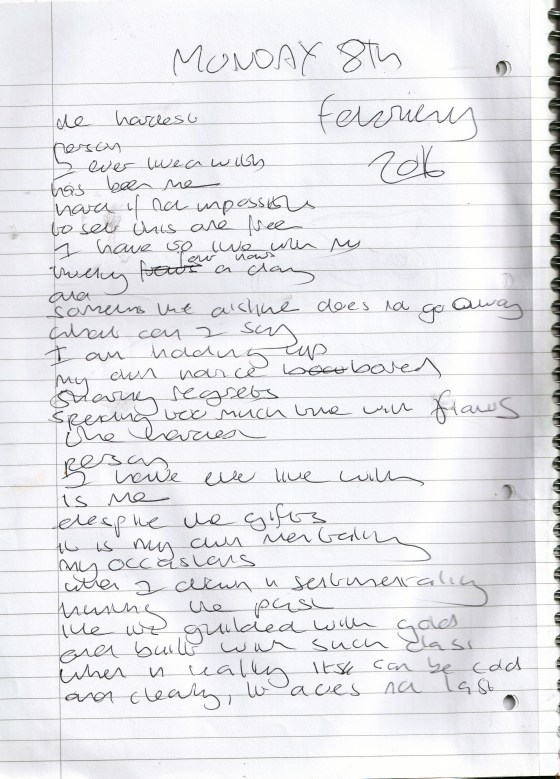 MONDAY 8th
February
2016
the hardest
person
I ever lived with
has been me
hard if not impossible
to set this are free
I have to live with my
twenty four hours a day
and
sometimes the decline does not go away
what can I say
I am holding up
my own notice board
sharing regrets
spending too much time with flaws
the hardest
person
I have ever live with
is me
despite the gifts
it is my own mentality
my occasions
when I drown in sentimentality
the past
like we guilded with gold
and built with such class
when in reality itse can be cold
and clearly, it does not last